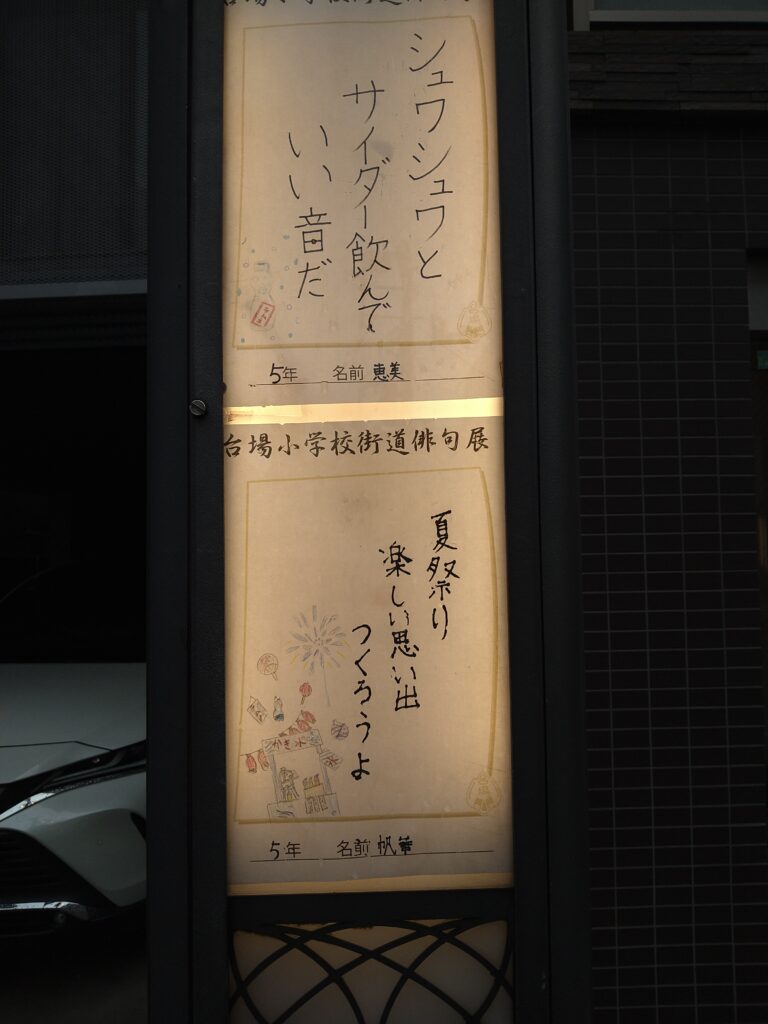 台場小学校街道俳句展
シュワシュワと
サイダー飲んで
いい音だ
5年 名前 恵美
台場小学校街道俳句展
夏祭り
楽しい思い出
つくろうよ
かき氷
5年 名前